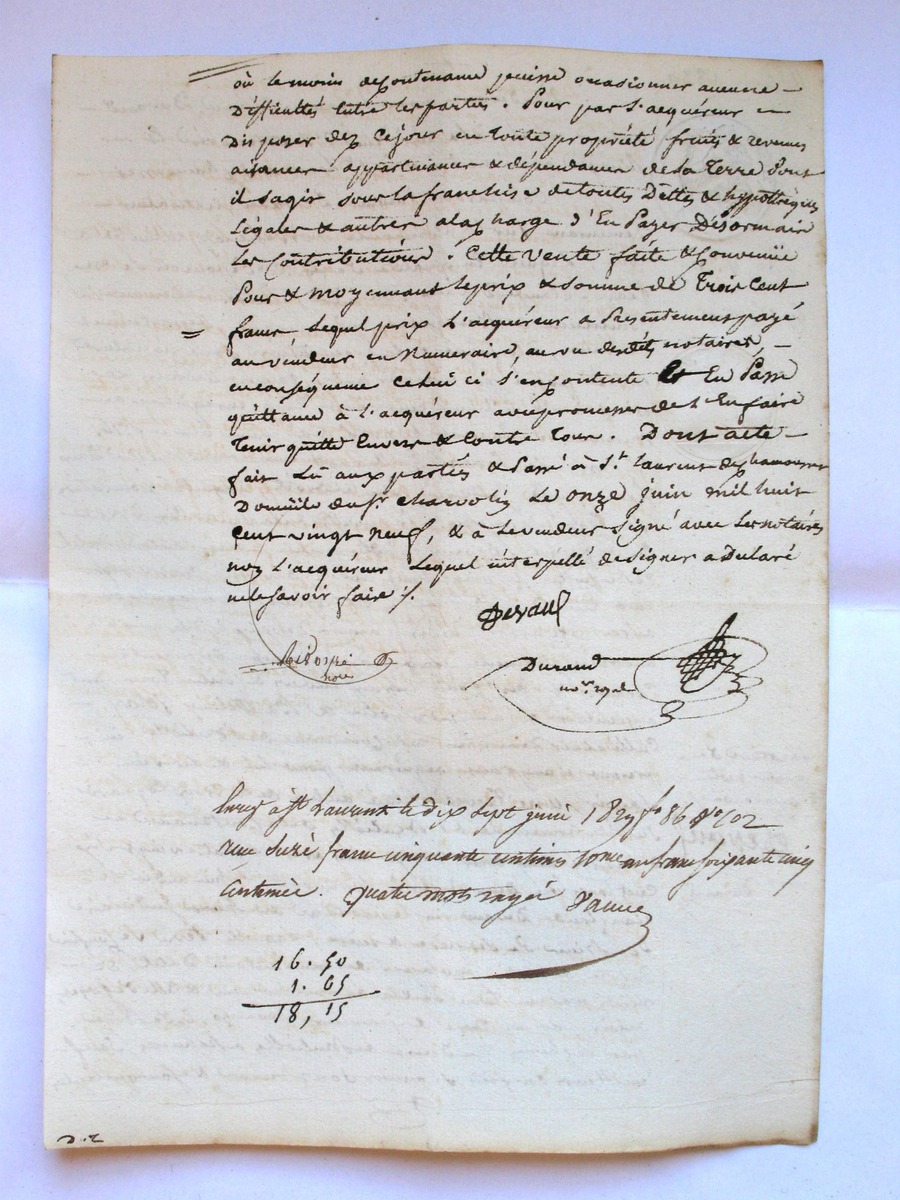 où le moin de contenance puisse occasionner aucune
Difficultés entre les parties. Pour par l'acquéreur
Disposer dez ce jour en toute propriété fruits & revenus
aisances appartenances & dépendances de la Terre Dont
il sagit sous la franchise de toutes Dettes & hyppothèques
Légales & autres ala charge d'En Payer Désormais
Les Contributions. Cette vente faite & Convenüe
Pour & moyennant le prix & somme de Trois Cent
francs Lequel prix L'acquéreur a Présentement payé
au vendeur en Numeraire, au vu desdits notaires,
en conséquence Celui ci s'en contente & En Passe
quittance à l'acquéreur avec promesse de l'En faire
Tenir quitte Envers & Contre Tous. Dont acte
fait Lû aux parties & Passé à St. laurent de chamousset
Domicile du Sr. Charvolin Le onze juin mil huit
Cent vingt neuf, & à Le vendeur Signé avec Les notaires
non L'acquéreur Lequel interpellé de Signer a Déclaré
ne le Savoir faire ./.
Devaux
Durand
nore. royal
Enreg à St Laurent le dix sept juin 1829 fo 86
reçu seize francs cinquante centimes un franc soixante cinq
Centimes. quatre mots rayés
16.50
1.65
18,15